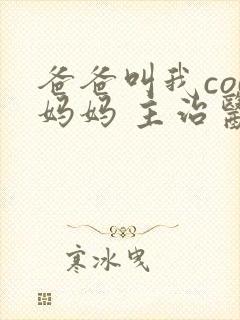 爸爸叫我co
妈妈 主治醫
寒冰曳